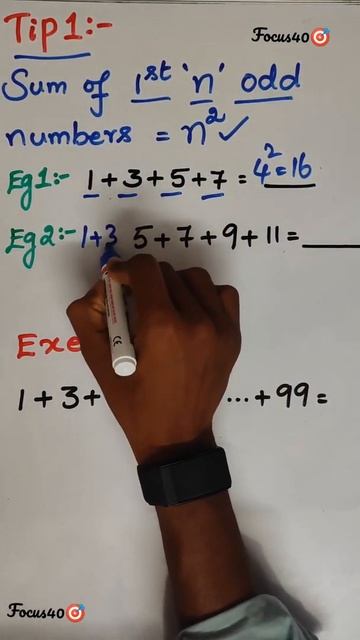 Tip 1:-
Focus40🎯
Sum of 1st 'n' odd
numbers = n² ✓
Eg1:- 1+3+5+7 = 4²=16
Eg2:- 1+3 5+7+9+11= ___
Exe
1+3+ ...+99=
Focus40🎯